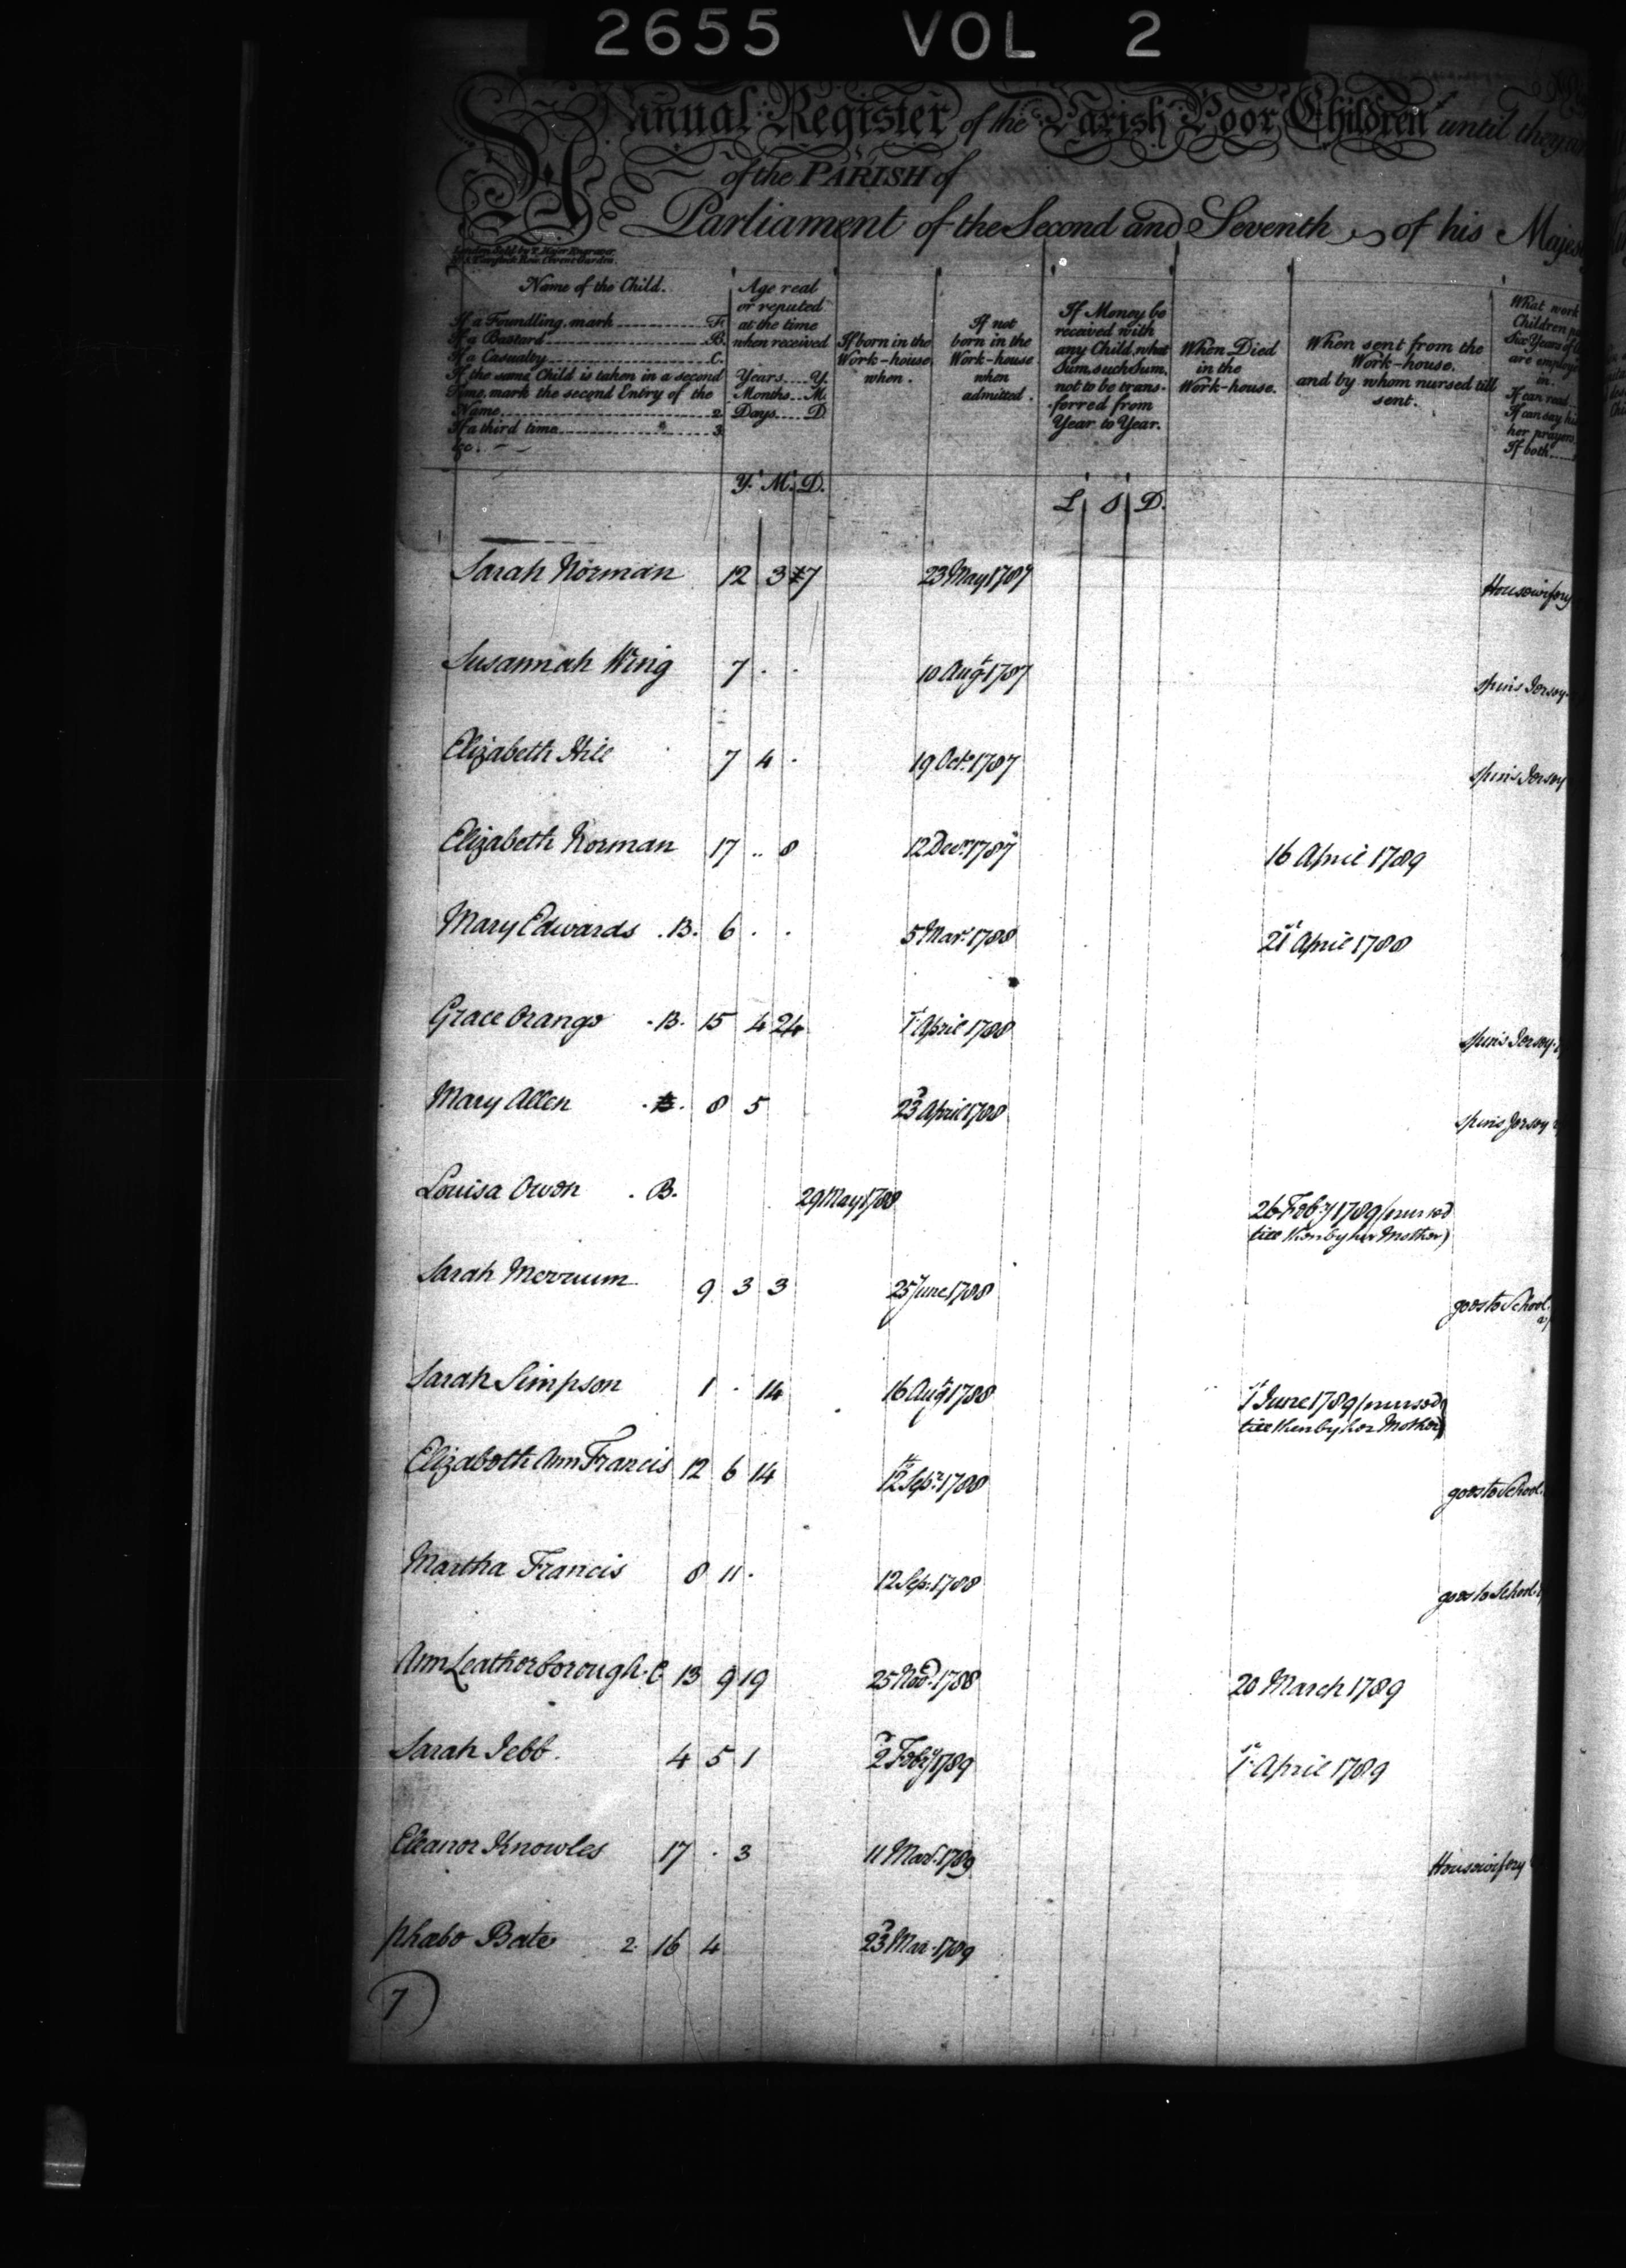 2655 VOL 2
Annual Register of the Parish Poor Children until they
of the PARISH of
Parliament of the Second and Seventh of his Majes
Name of the Child.
If a Foundling, mark F.
If a Bastard B.
If a Casualty C.
If the same Child is taken in a second
Time, mark the second Entry of the
Name 2
If a third time 3
&c.
Age real
or reputed
at the time
when received
Years Y.
Months M.
Days D.
If born in the
Work-house
when.
If not
born in the
Work-house
when
admitted.
If Money be
received with
any Child, what
Sum, such Sum,
not to be trans-
ferred from
Year to Year.
When Died
in the
Work-house.
When sent from the
Work-house.
and by whom nursed till
sent.
What work
Children
Six Years
are employ
in.
If can read
If can say hi
her prayers
If both
Y. M. D.
L S D.
Sarah Norman 12 3 7 23 May 1787 Housewifery
Susannah Wing 7 . . 10 Augt 1787 spins Jersey
Elizabeth Hill 7 4 . 19 Octr 1787 spins Jersey
Elizabeth Norman 17 .. 8 12 Decr 1787 16 April 1789
Mary Edwards .B. 6 . . 5 Mar. 1788 21st April 1788
Grace Orange .B. 15 4 24 1st April 1788 spins Jersey
Mary Allen 8 5 23d April 1788 spins Jersey
Louisa Owen . B. 29 May 1788 26 Feby 1789 (nursed
till then by her Mother)
Sarah Merrium 9 3 3 25 June 1788 goes to School.
Sarah Simpson 1 . 14 16 Augt 1788 1st June 1789 (nursed
till then by her Mother)
Elizabeth Ann Francis 12 6 14 12th Sepr. 1788 goes to School.
Martha Francis 8 11 . 12 Sep. 1788 goes to School.
Ann Leatherborough. C. 13 9 19 25 Nov. 1788 20 March 1789
Sarah Jebb. 4 5 1 2d Feby 1789 1st April 1789
Eleanor Knowles 17 . 3 11 Mar. 1789 Housewifery
Phœbe Bate 2. 16 4 23d Mar. 1789
7)